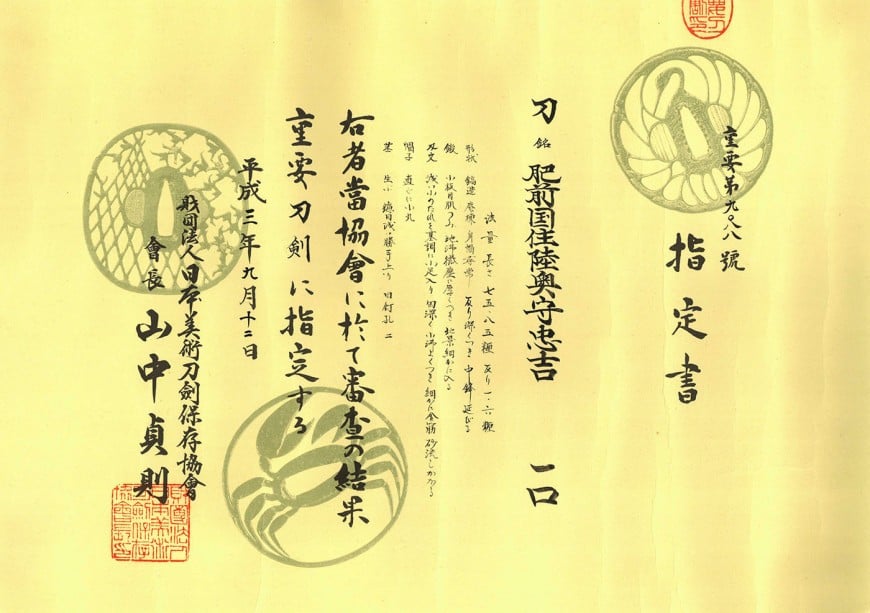 重要第九〇八八號
指定書
刀 銘 肥前国住陸奥守忠吉 一口
法量 長さ 七五・八五糎 反り 一・六糎
形状 鎬造 庵棟 身幅尋常 反り深くつき 中鋒延びる
鍛 小板目肌つみ 地沸微塵に厚くつき 地景細かに入る
刃文 浅い小のたれを基調に小足入り 匂深く 小沸よくつき 細かに金筋 砂流しかかる
帽子 直ぐに小丸
茎 生ぶ 鑢目浅い勝手上り 目釘孔二
右者當協會に於て審査の結果
重要刀剣に指定する
平成三年九月十二日
財団法人日本美術刀劍保存協會
會長 山中貞則